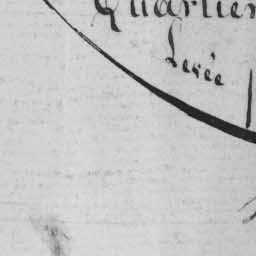 Quartier
Levée